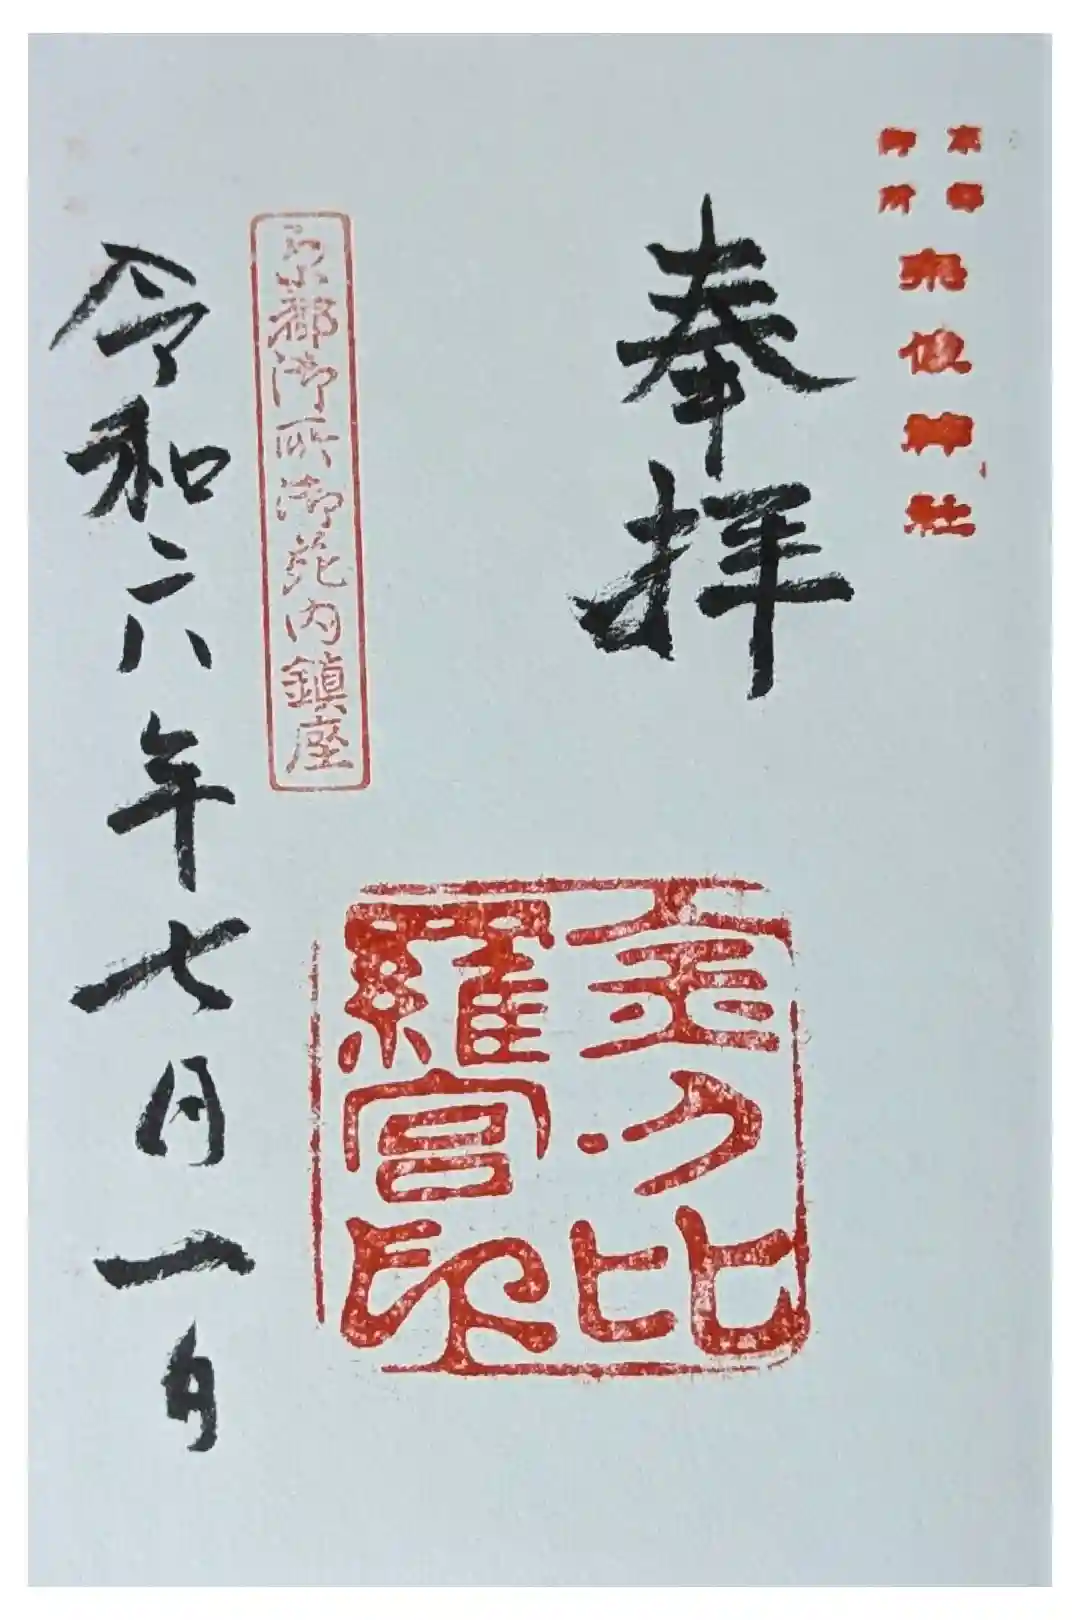 京都
御所
宗像神社
奉拝
金刀比
羅宮印
京都御所御苑内鎮座
令和六年七月一日